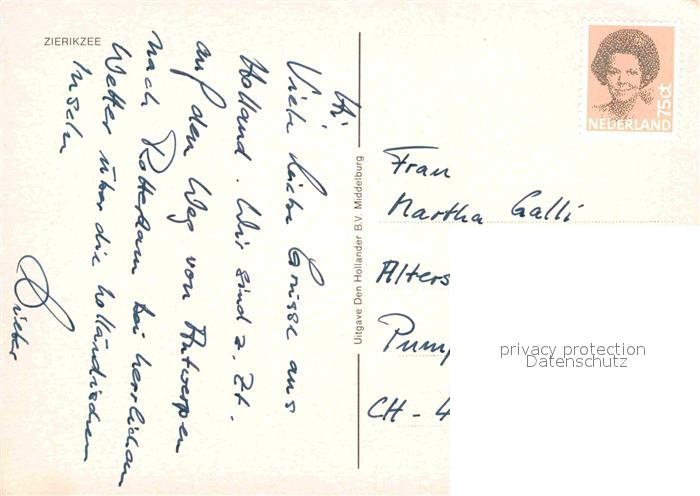 ZIERIKZEE
NEDERLAND
75ct
Hi
Viele liebe Grüsse aus
Holland. Wir sind z. Zt.
auf den Weg von Antwerpen
nach Rotterdam bei herrlichem
Wetter über die holländischen
Inseln
Dieter
Uitgave Den Hollander B.V. Middelburg
Frau
Martha Galli
Alters
Pump
CH - 4
privacy protection
Datenschutz